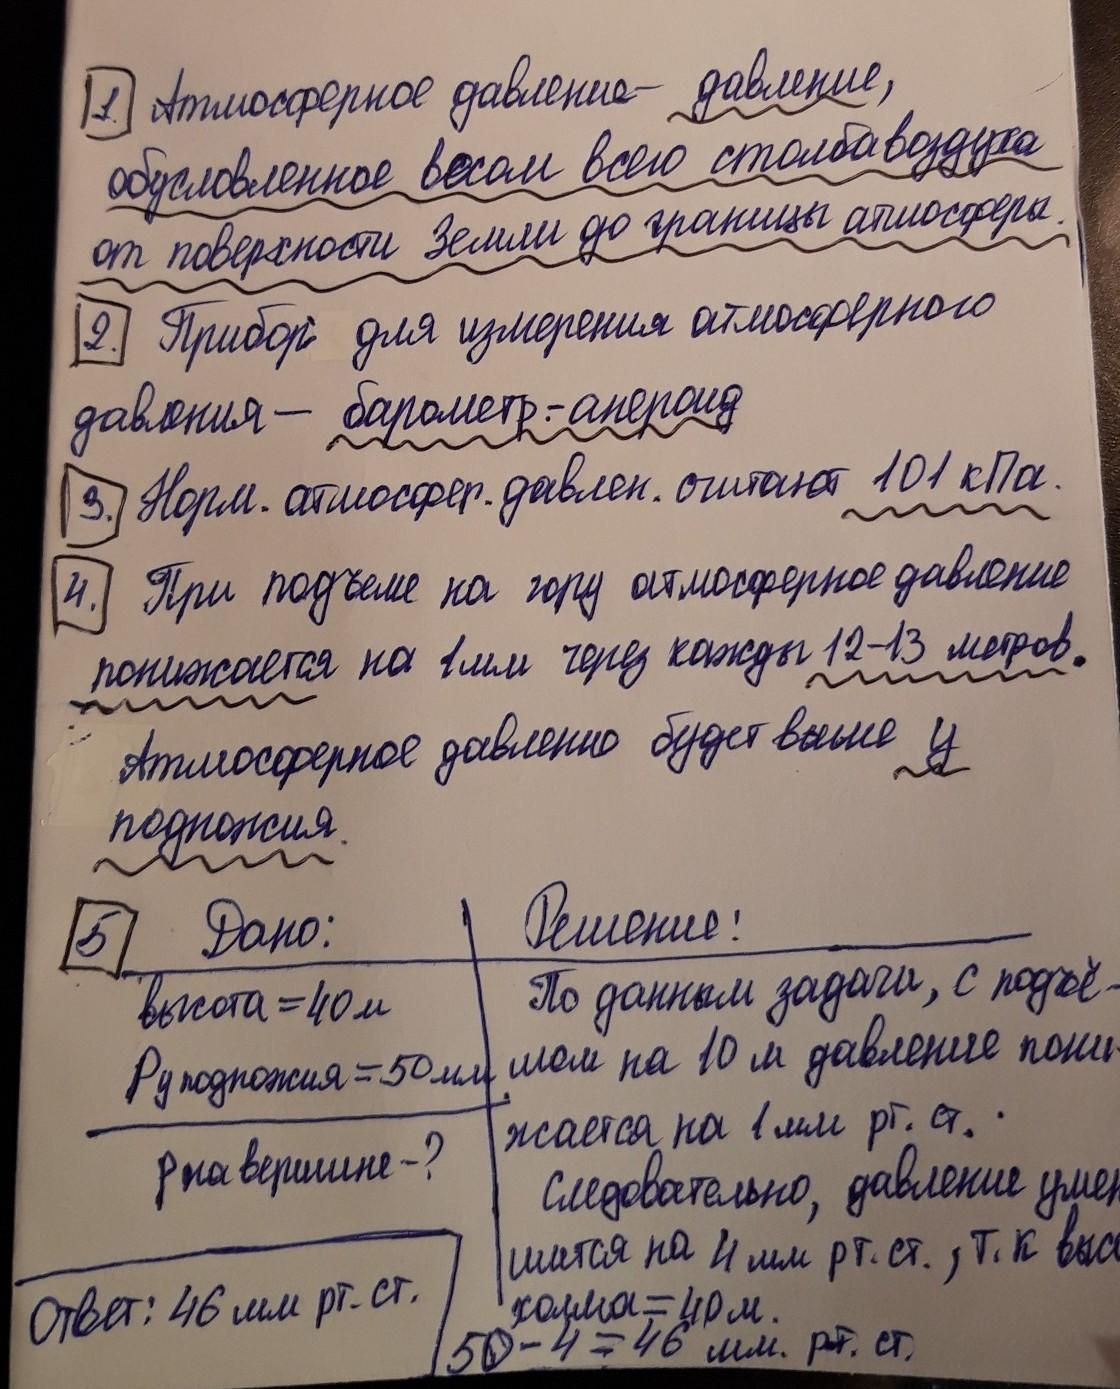 1. Атмосферное давление - давление,
обусловленное весом всего столба воздуха
от поверхности Земли до границы атмосферы.
2. Прибор для измерения атмосферного
давления - барометр-анероид
3. Норм. атмосфер. давлен. считают 101 кПа.
4. При подъеме на гору атмосферное давление
понижается на 1мм через кажды 12-13 метров.
Атмосферное давление будет выше у
подножия.
5 Дано: Решение:
высота = 40м По данным задачи, с подъё-
Р у подножия = 50мм. мом на 10 м давление пони-
жается на 1 мм рт. ст.
р на вершине - ? Следовательно, давление умен
шится на 4 мм рт. ст., т. к высо
холма = 40м.
Ответ: 46 мм рт. ст. 50 - 4 = 46 мм. рт. ст.